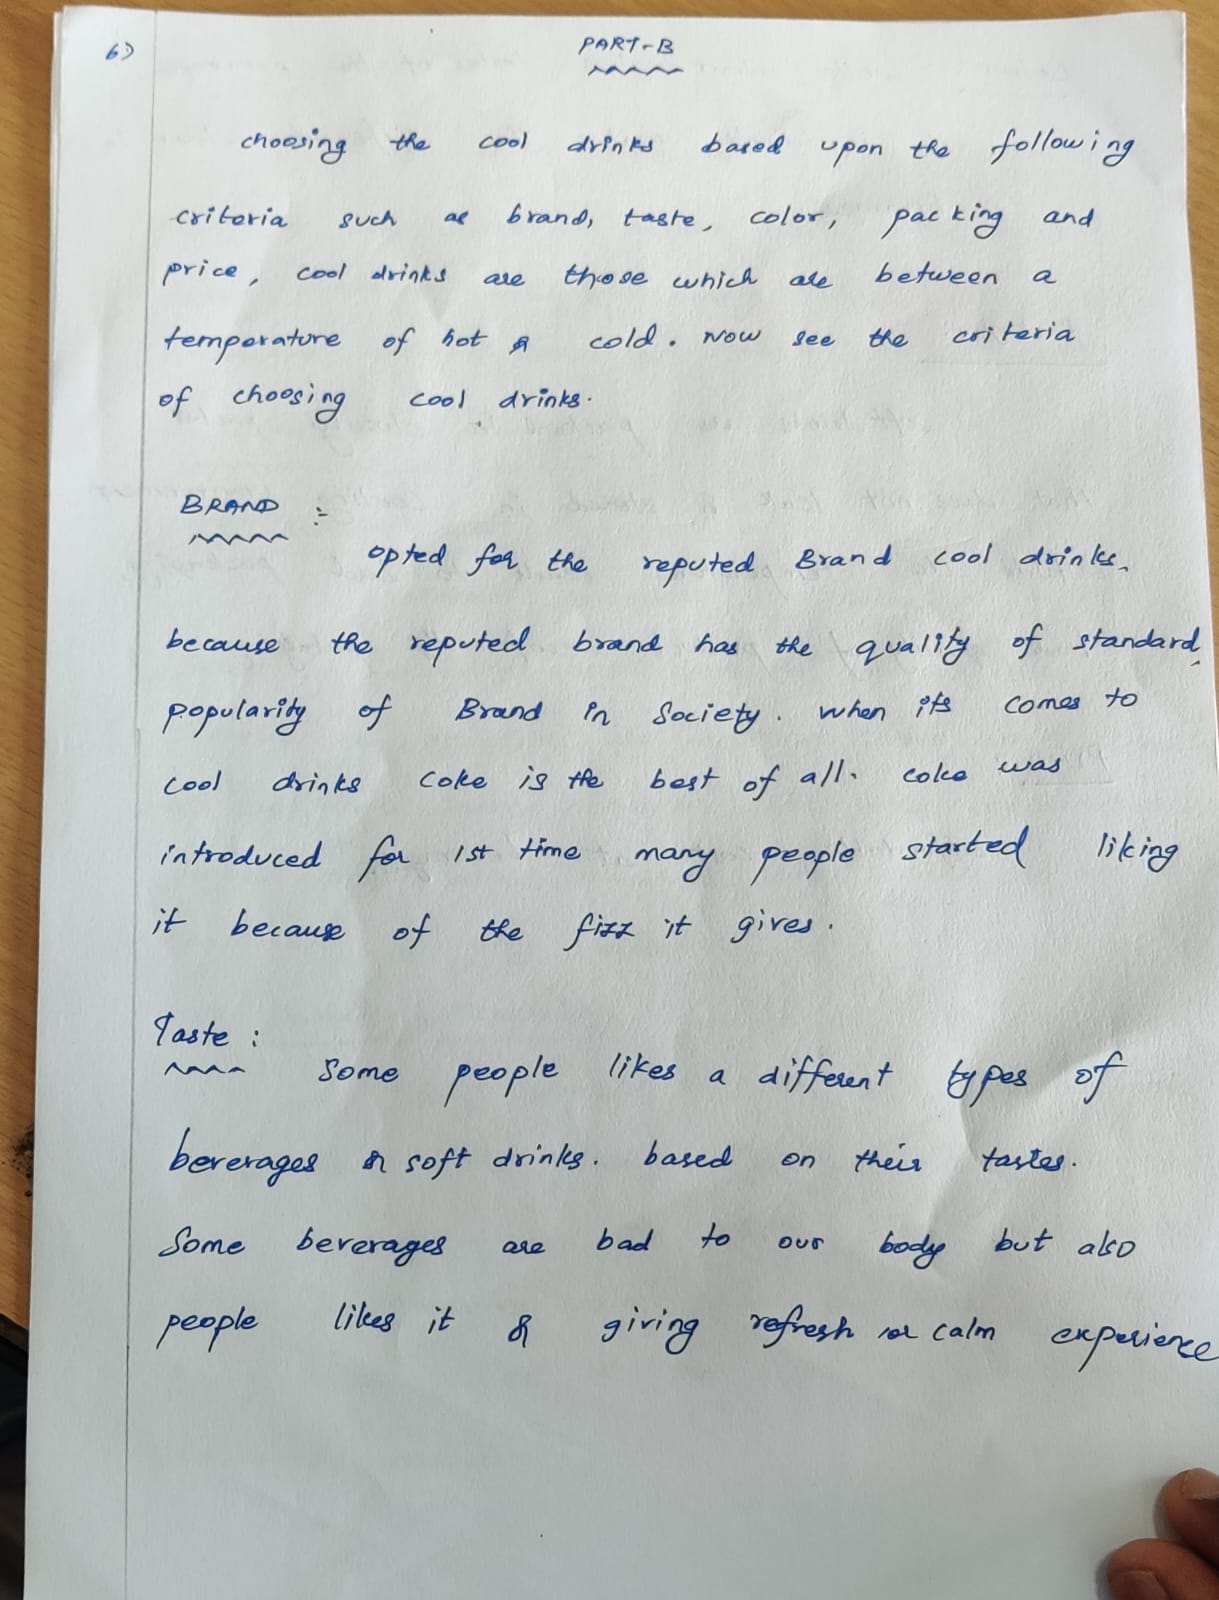 6)
PART-B
choosing the cool drinks based upon the following
criteria such as brand, taste, color, packing and
price, cool drinks are those which are between a
temperature of hot & cold. Now see the criteria
of choosing cool drinks.
BRAND :-
opted for the reputed Brand cool drinks,
because the reputed brand has the quality of standard,
popularity of Brand in Society. when its comes to
cool drinks coke is the best of all. coke was
introduced for 1st time, many people started liking
it because of the fizz it gives.
Taste :
Some people likes a different types of
beverages & soft drinks. based on their tastes.
Some beverages are bad to our body but also
people likes it & giving refresh or calm experience